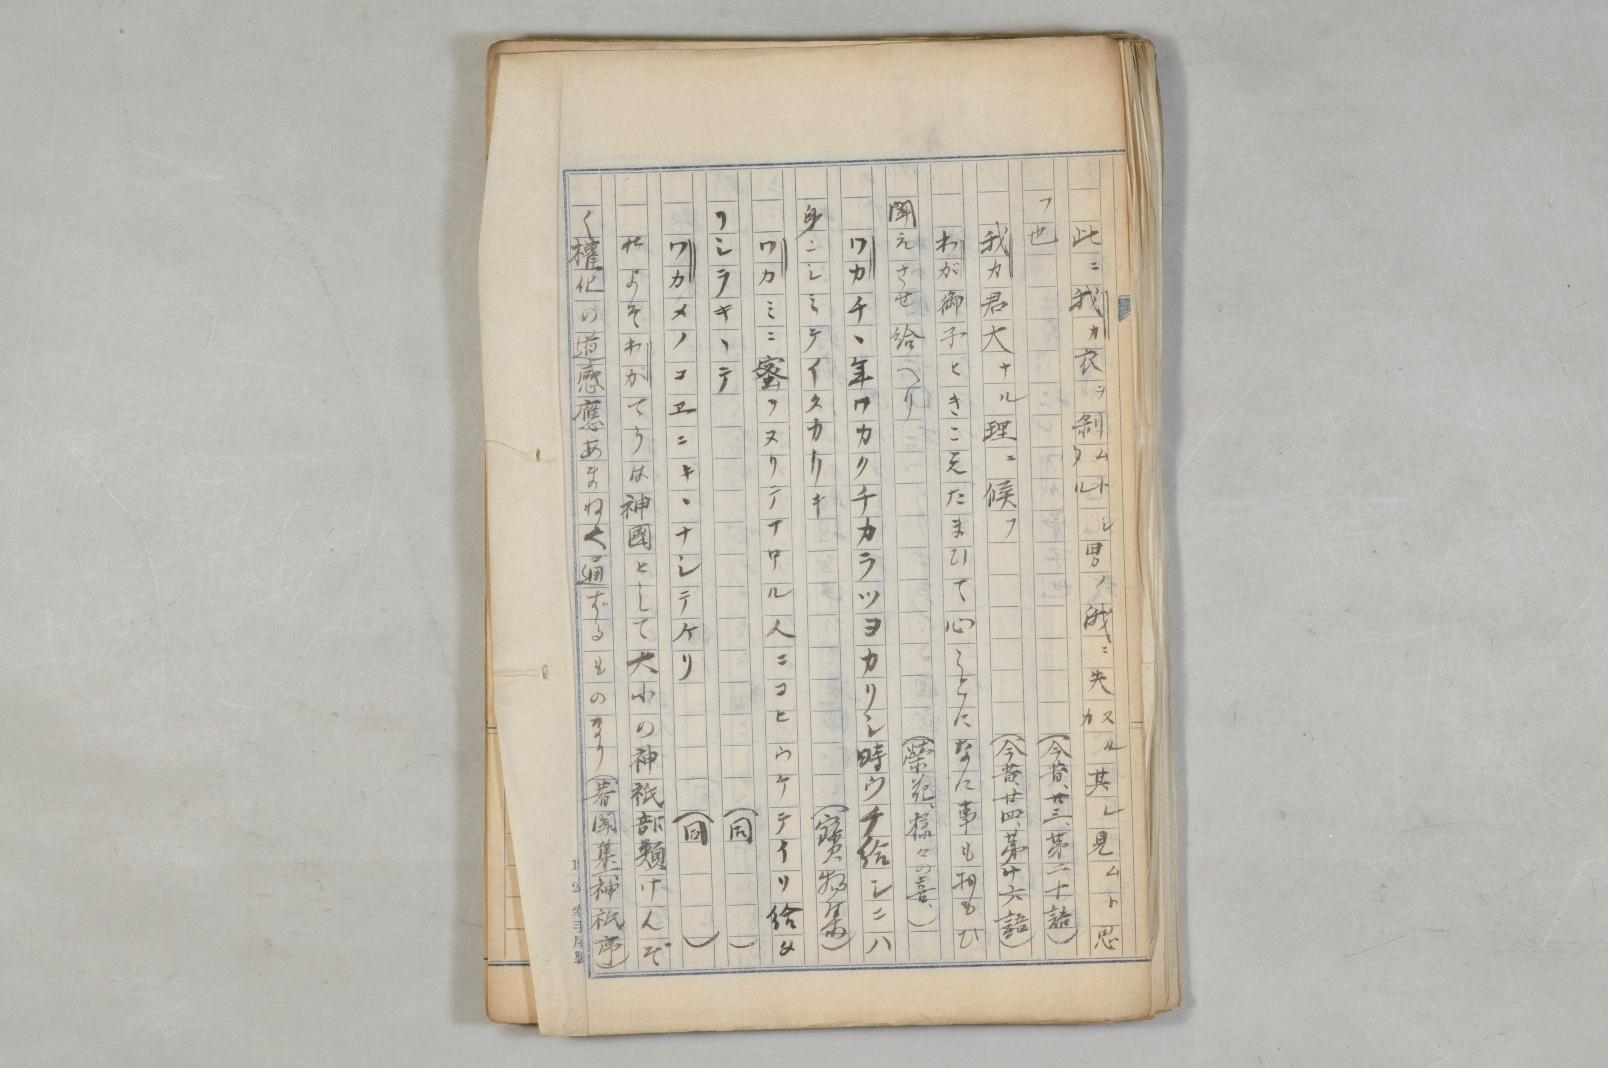 此ニ我カ衣ヲ剝ムトシタル男ノ俄ニ失ヌルカ其レ見ムト思
フ也 (今昔、廿三、第二十語)
我カ君大ナル理ニ候フ (今昔、廿四、第廿六語)
わが御子ときこえたまひて心ことになに事も
聞えさせ給へり (榮花、様々の喜、)
ワカチヽ年ワカクチカラツヨカリシ時ウチ給シニハ
身ニシミテイタカリキ (寶物集)
ワカミニ蜜ヲヌリテナヤル人ニコヒウケテイリ給
ワシラキヽテ (同)
ワカメノコヱニキヽナシテケリ (同)
およそわがてうは神國として大小の神祇部類けんぞ
く權化の道感應あまねく通ずるものなり (著聞集、神祇序)